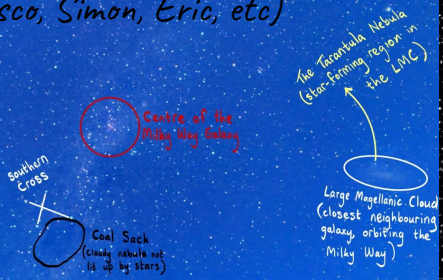 sco, Simon, Eric, etc)
The Tarantula Nebula
(star-forming region in
the LMC)
Centre of the
Milky Way Galaxy
Southern
Cross
Coal Sack
(cloudy nebula not
lit up by stars)
Large Magellanic Cloud
(closest neighbouring
galaxy, orbiting the
Milky Way)